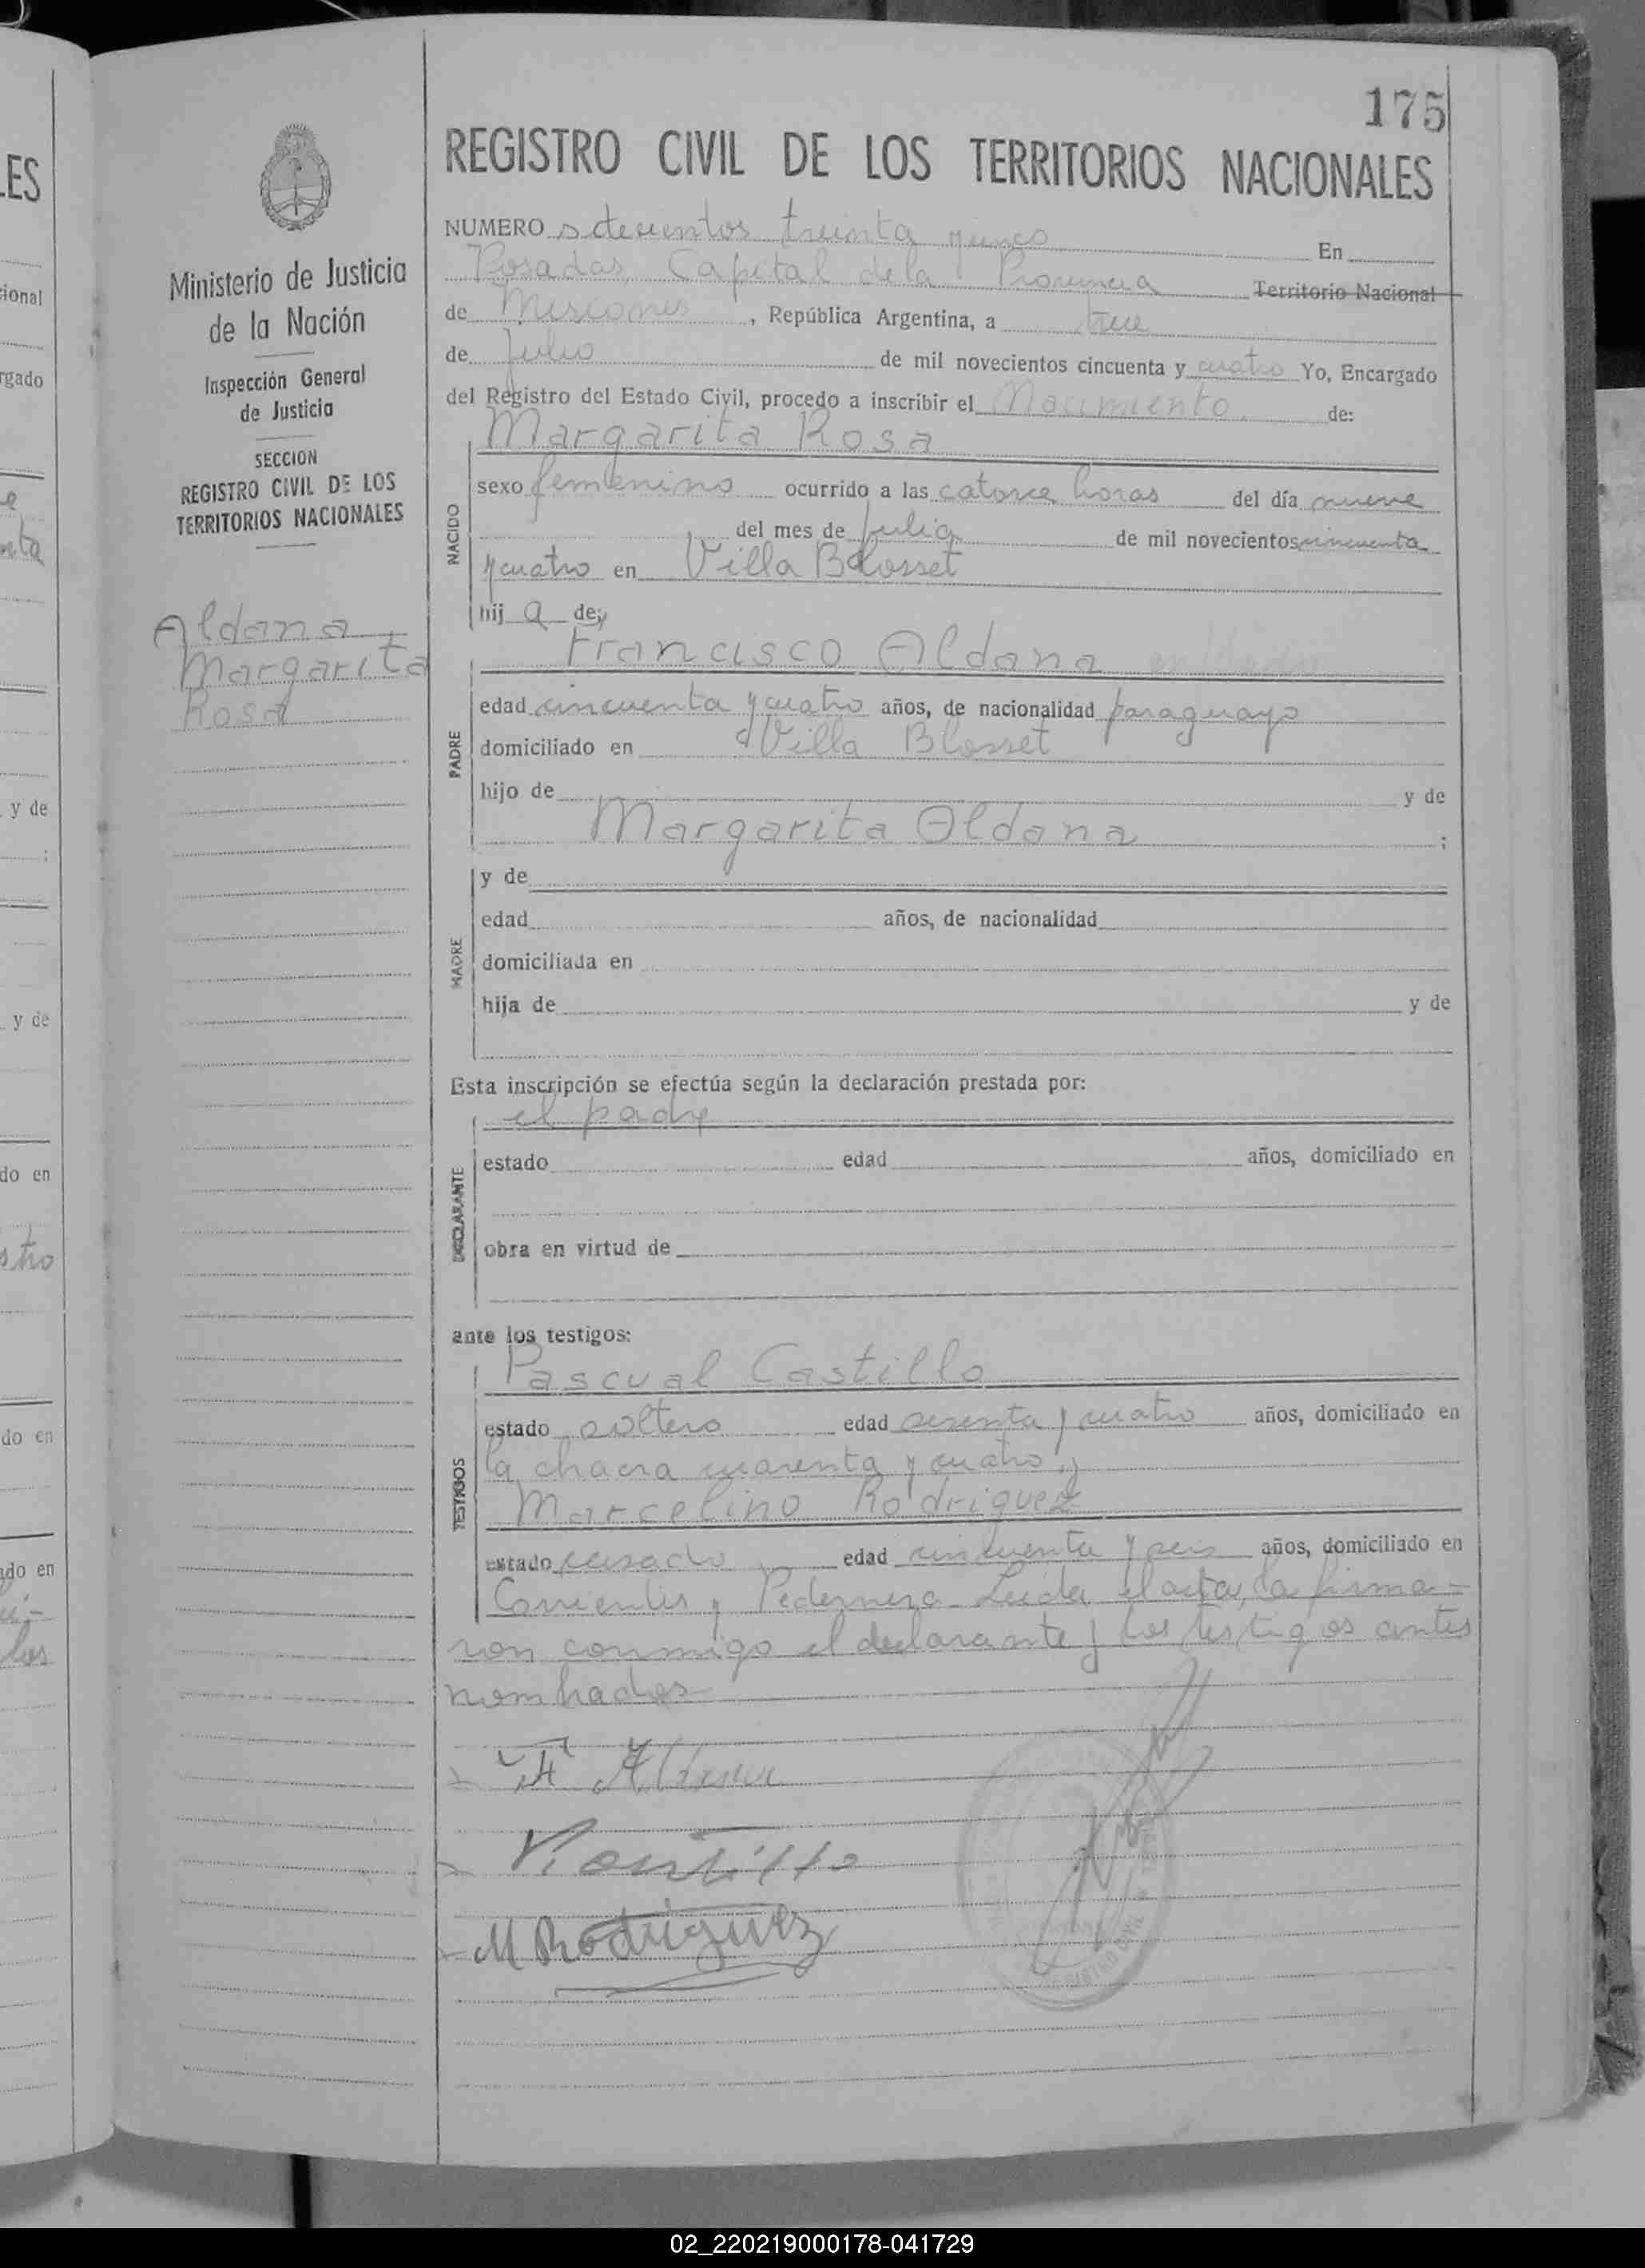 175
REGISTRO CIVIL DE LOS TERRITORIOS NACIONALES
Ministerio de Justicia
de la Nación
Inspección General
de Justicia
SECCION
REGISTRO CIVIL DE LOS
TERRITORIOS NACIONALES
Aldana
Margarita
Rosa
NUMERO setecientos treinta y cinco En
Posadas, Capital de la Provincia Territorio Nacional
de Misiones, República Argentina, a trece
de Julio de mil novecientos cincuenta y cuatro Yo, Encargado
del Registro del Estado Civil, procedo a inscribir el Nacimiento. de:
NACIDO
Margarita Rosa
sexo femenino ocurrido a las catorce horas del día nueve
del mes de Julio de mil novecientos cincuenta
y cuatro en Villa Blosset
hij a de:
PADRE
Francisco Aldana
edad cincuenta y cuatro años, de nacionalidad paraguayo
domiciliado en Villa Blosset
hijo de y de
Margarita Aldana ;
MADRE
y de
edad años, de nacionalidad
domiciliada en
hija de y de
Esta inscripción se efectúa según la declaración prestada por:
DECLARANTE
el padre
estado edad años, domiciliado en
obra en virtud de
ante los testigos:
TESTIGOS
Pascual Castillo
estado soltero edad sesenta y cuatro años, domiciliado en
la chacra cuarenta y cuatro y
Marcelino Rodriguez
estado casado edad cincuenta y seis años, domiciliado en
Corrientes y Pedernera. Leida el acta, la firma-
ron conmigo el declarante y los testigos antes
nombrados
F. Aldana
P. Castillo
M Rodriguez
REGISTRO CIVIL
ES
cional
rgado
nta
y de
;
y de
do en
do en
do en
los
02_220219000178-041729